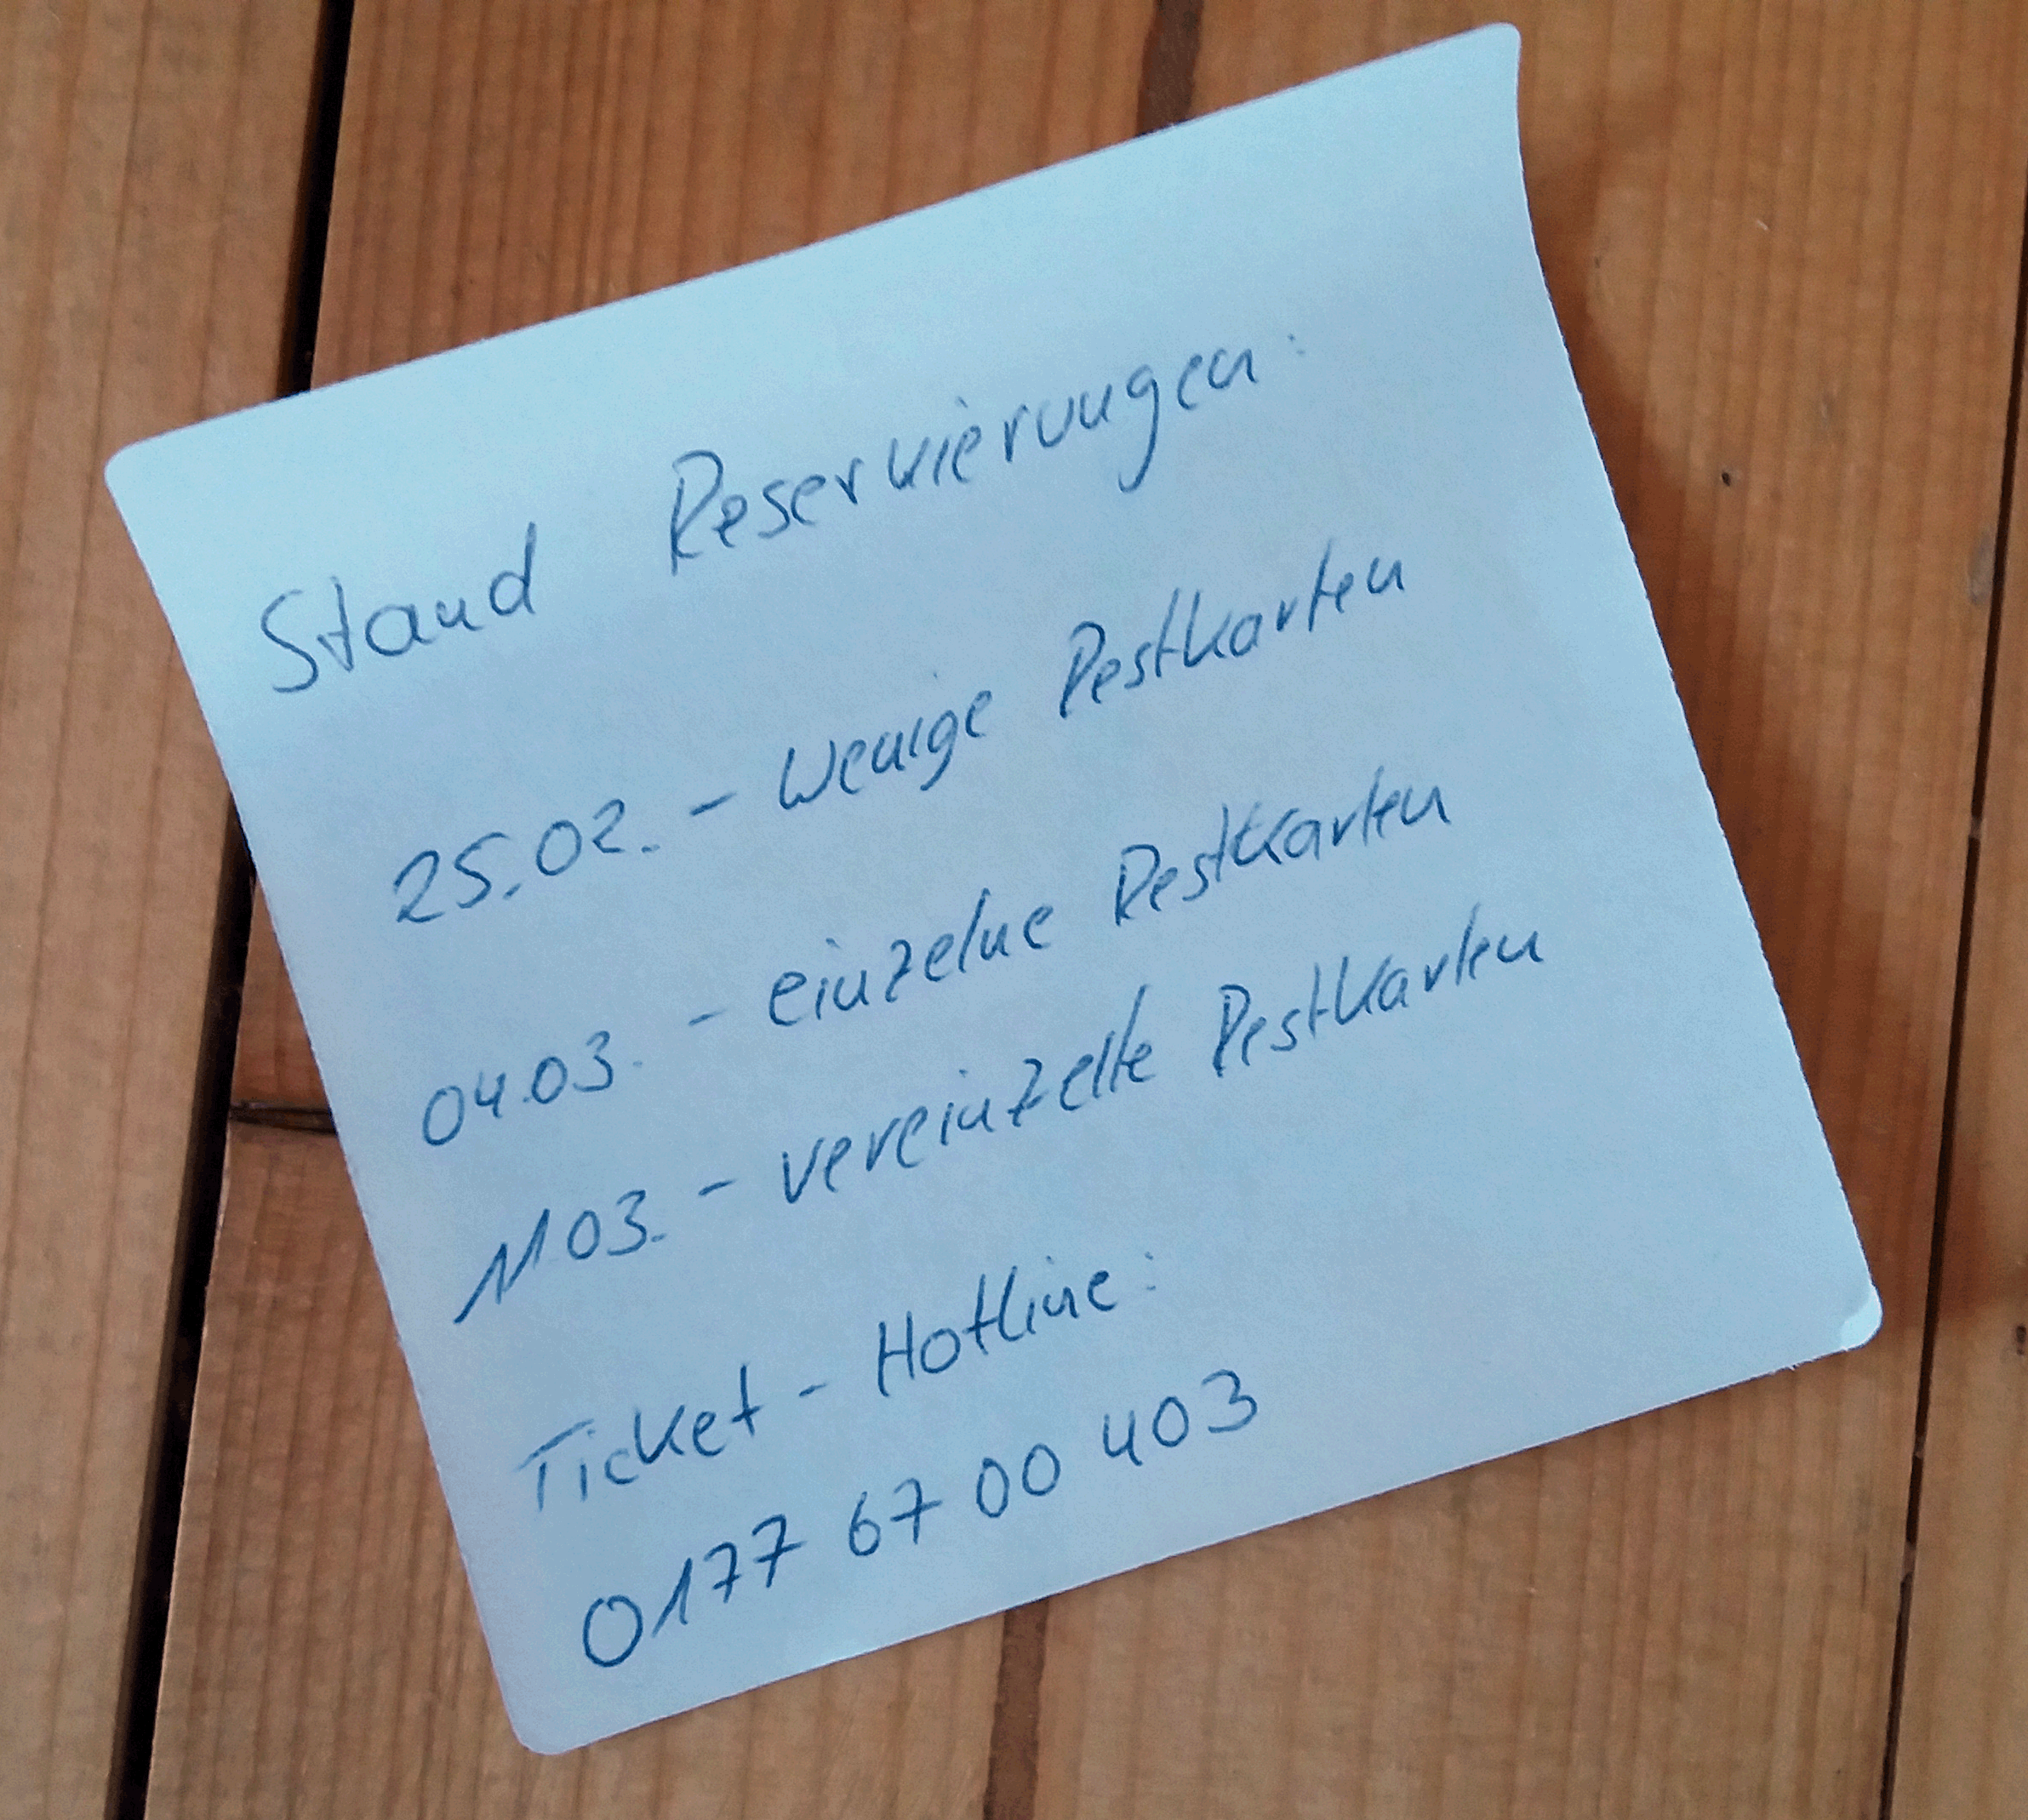 Stand Reservierungen:
25.02. - Wenige Restkarten
04.03. - einzelne Restkarten
11.03. - vereinzelte Restkarten
Ticket - Hotline:
0177 67 00 403